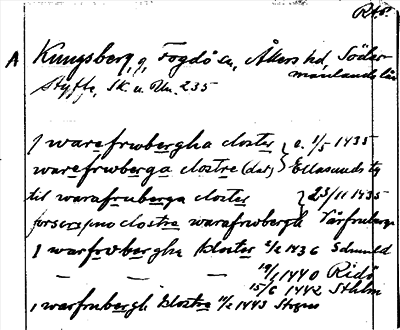 Rto.
A Kungsberg, g, Fogdö sn, Åkers hd, Söder-
manlands län
Styffe, Sk. u. Un. 235
J warefrwbergha closter } o. 1/5 1435
warefrwberga clostre (dat) } Ellasunds ty
til warafruberga closter } 23/11 1435
clostra warafrwbergh Vårfruberga
J warfrvberghe kloster 5/2 1436
— — — 19/1 1440 Ridö
15/6 1442 Sthlm
J warfrubergh klostre 11/2 1443